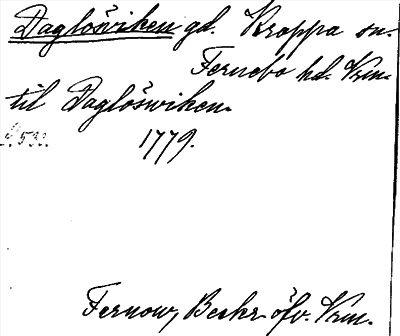 Daglösviken gd. Kroppa sn.
Fernebo hd. Vrm.
til Daglöswiken.
S. 533.
1779.
Fernow, Beskr. öfv. Vrm.